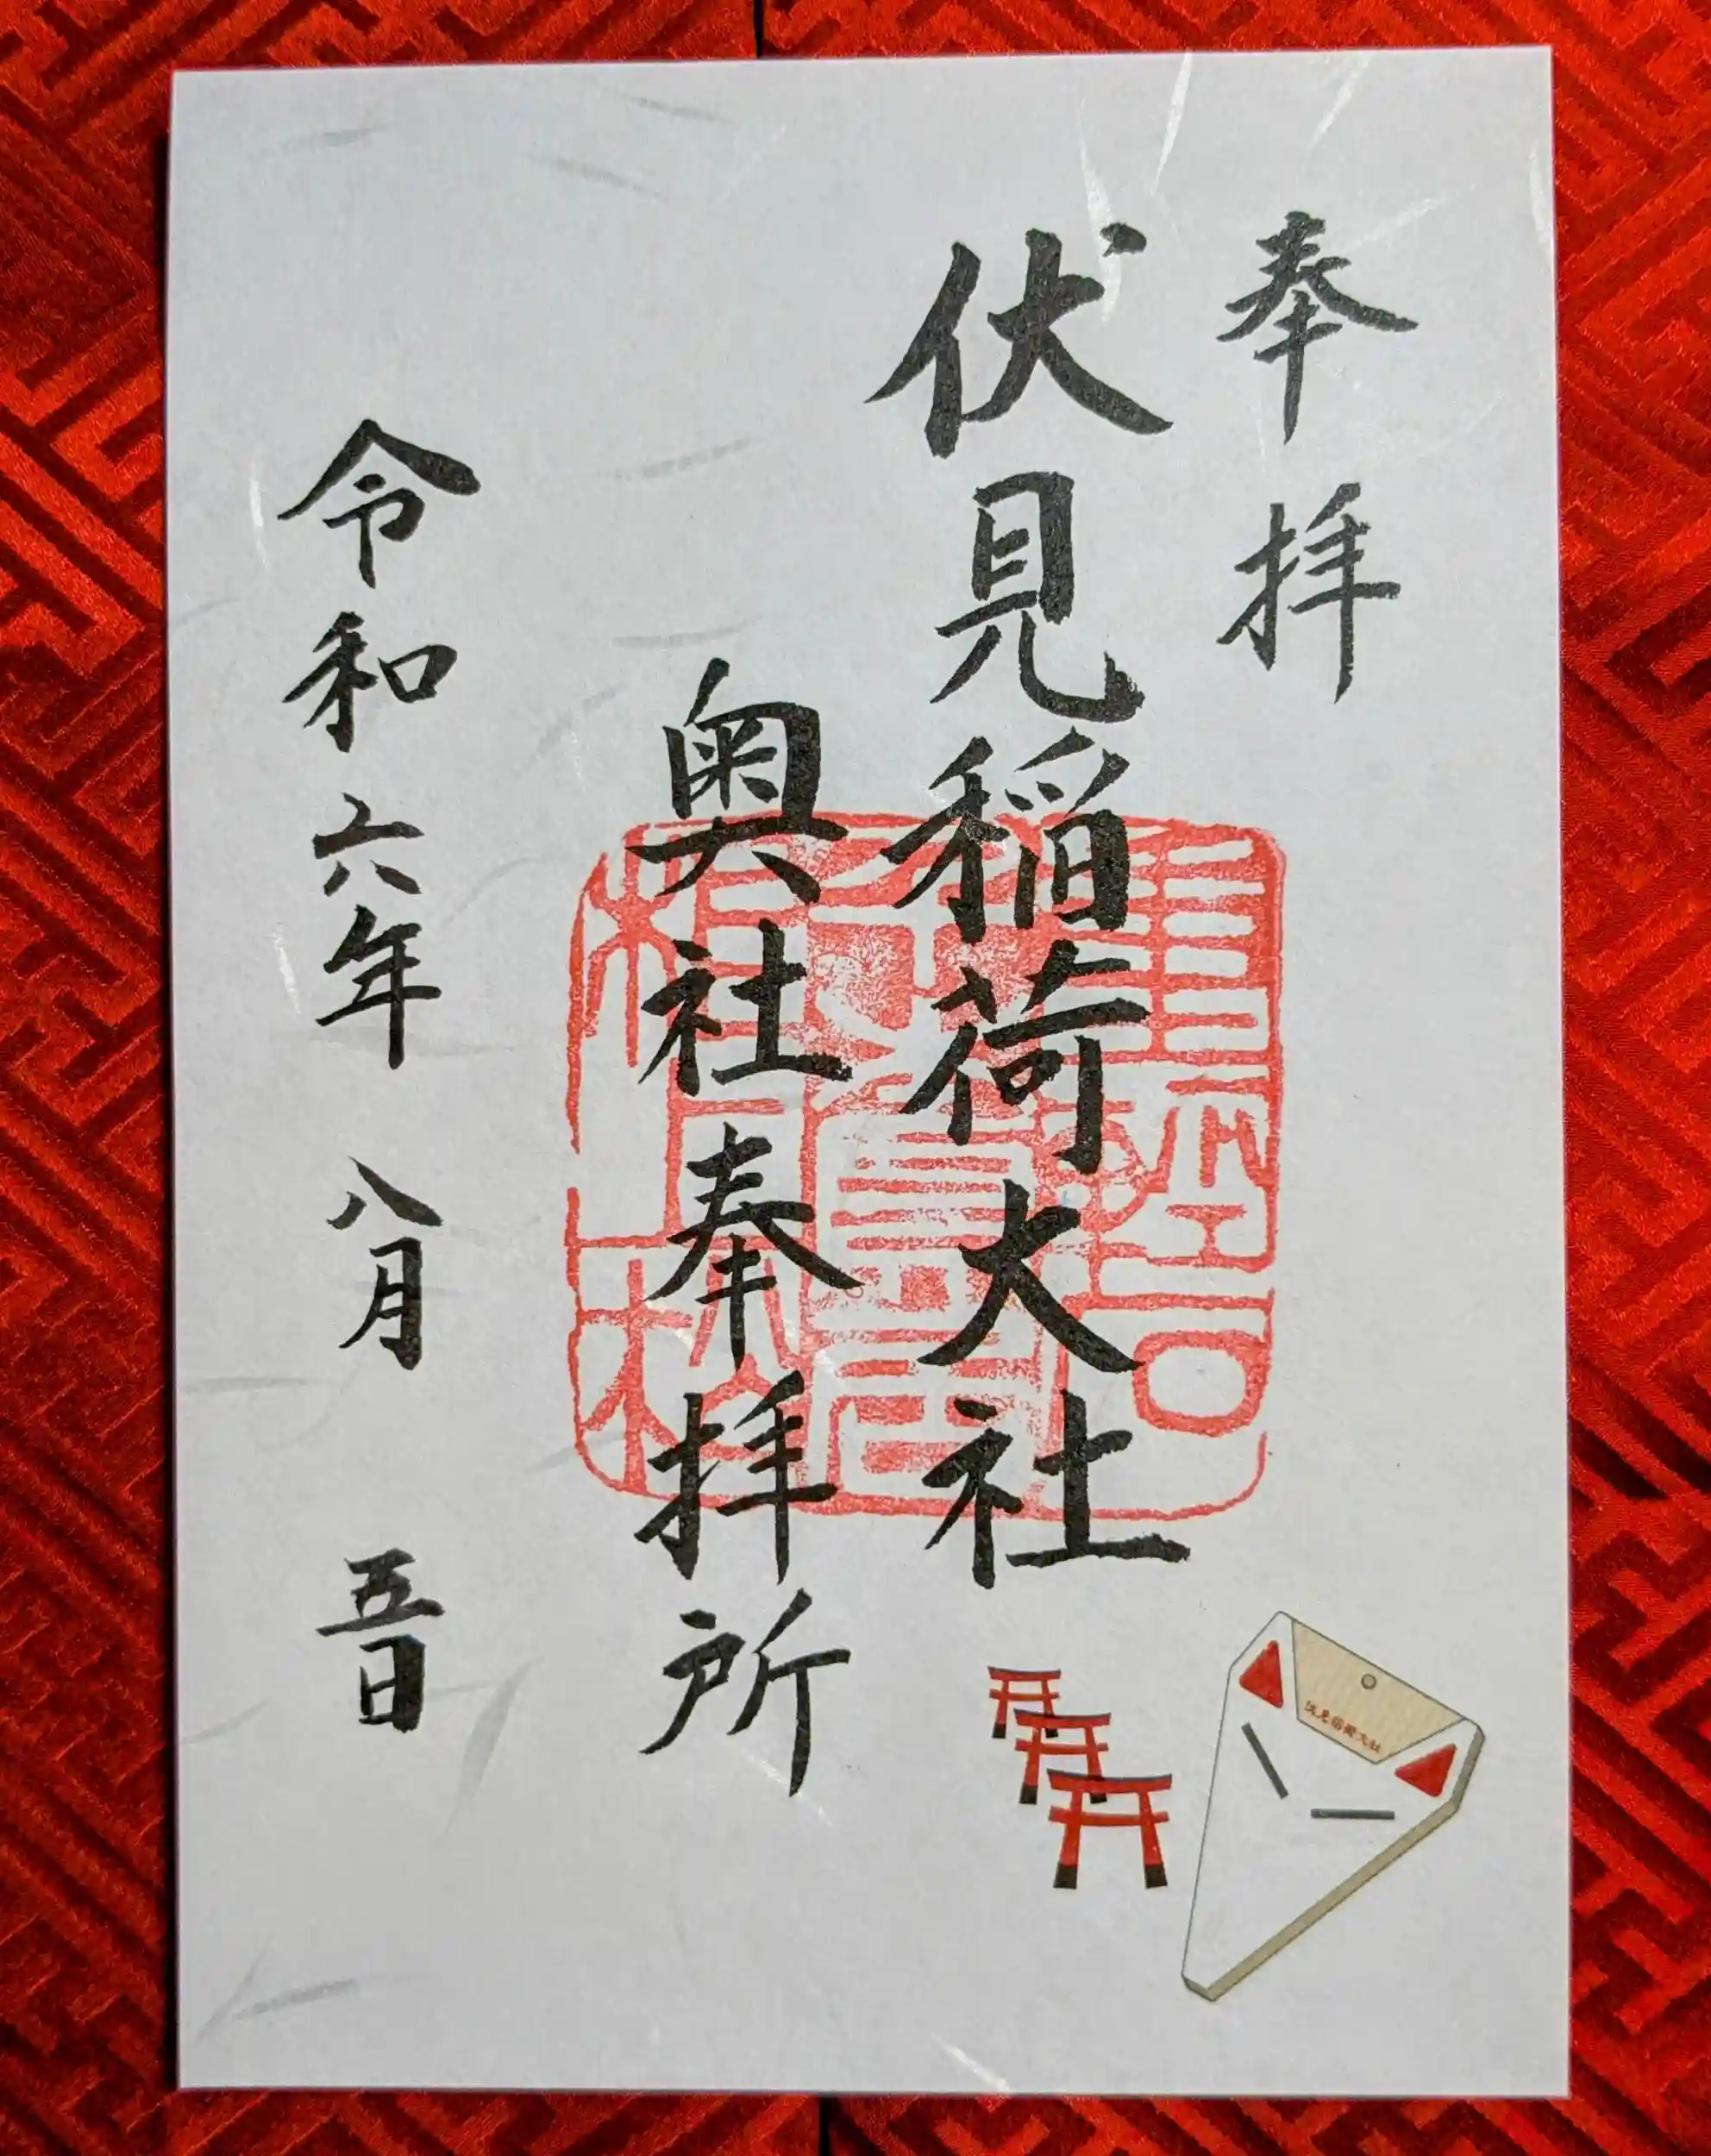 奉拝
伏見稲荷大社
奥社奉拝所
令和六年 八月 五日
伏見稲荷大社